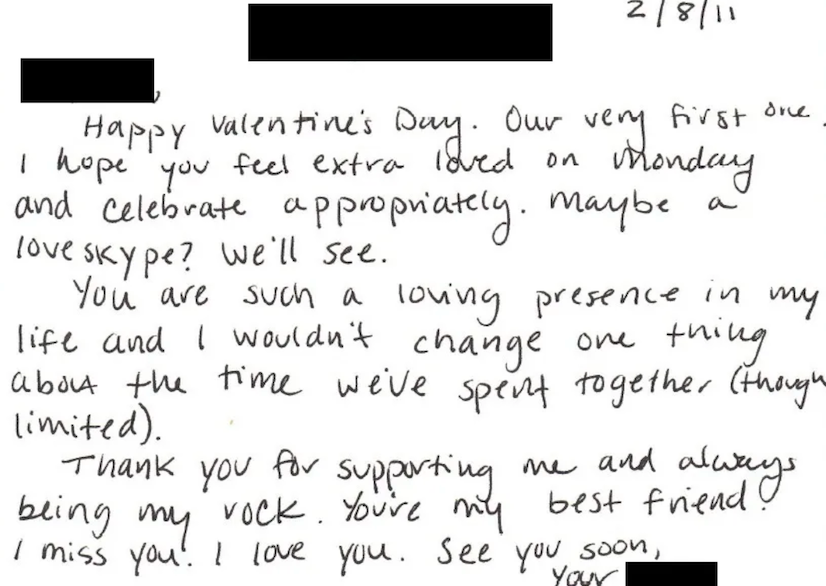 2/8/11
,
Happy Valentine's Day. Our very first one.
I hope you feel extra loved on Monday
and celebrate appropriately. Maybe a
love skype? We'll see.
You are such a loving presence in my
life and I wouldn't change one thing
about the time we've spent together (though
limited).
Thank you for supporting me and always
being my rock. You're my best friend!
I miss you! I love you. See you soon,
Your